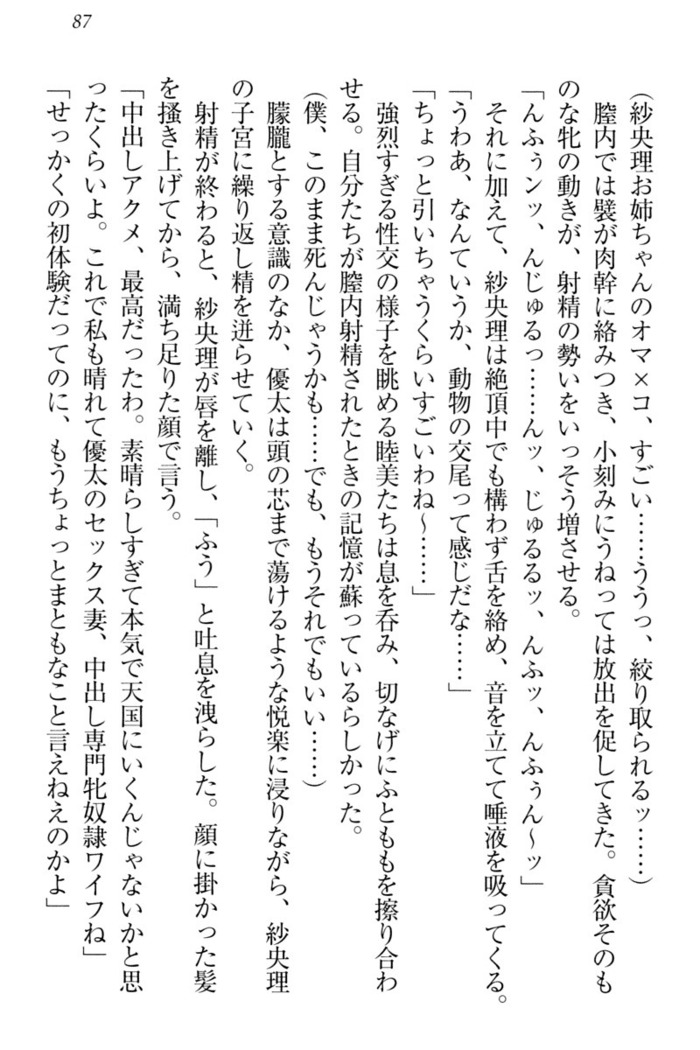 87
(紗央理お姉ちゃんのオマ×コ、すごい……ううっ、絞り取られるッ……)
膣内では襞が肉幹に絡みつき、小刻みにうねっては放出を促してきた。貪欲そのも
のな牝の動きが、射精の勢いをいっそう増させる。
「んふぅンッ、んじゅるっ……んッ、じゅるるッ、んふッ、んふぅん～ッ」
それに加えて、紗央理は絶頂中でも構わず舌を絡め、音を立てて唾液を吸ってくる。
「うわあ、なんていうか、動物の交尾って感じだな……」
「ちょっと引いちゃうくらいすごいわね～……」
強烈すぎる性交の様子を眺める睦美たちは息を呑み、切なげにふとももを擦り合わ
せる。自分たちが膣内射精されたときの記憶が蘇っているらしかった。
(僕、このまま死んじゃうかも……でも、もうそれでもいい……)
朦朧とする意識のなか、優太は頭の芯まで蕩けるような悦楽に浸りながら、紗央理
の子宮に繰り返し精を迸らせていく。
射精が終わると、紗央理が唇を離し、「ふう」と吐息を洩らした。顔に掛かった髪
を掻き上げてから、満ち足りた顔で言う。
「中出しアクメ、最高だったわ。素晴らしすぎて本気で天国にいくんじゃないかと思
ったくらいよ。これで私も晴れて優太のセックス妻、中出し専門牝奴隷ワイフね」
「せっかくの初体験だってのに、もうちょっとまともなこと言えねえのかよ」